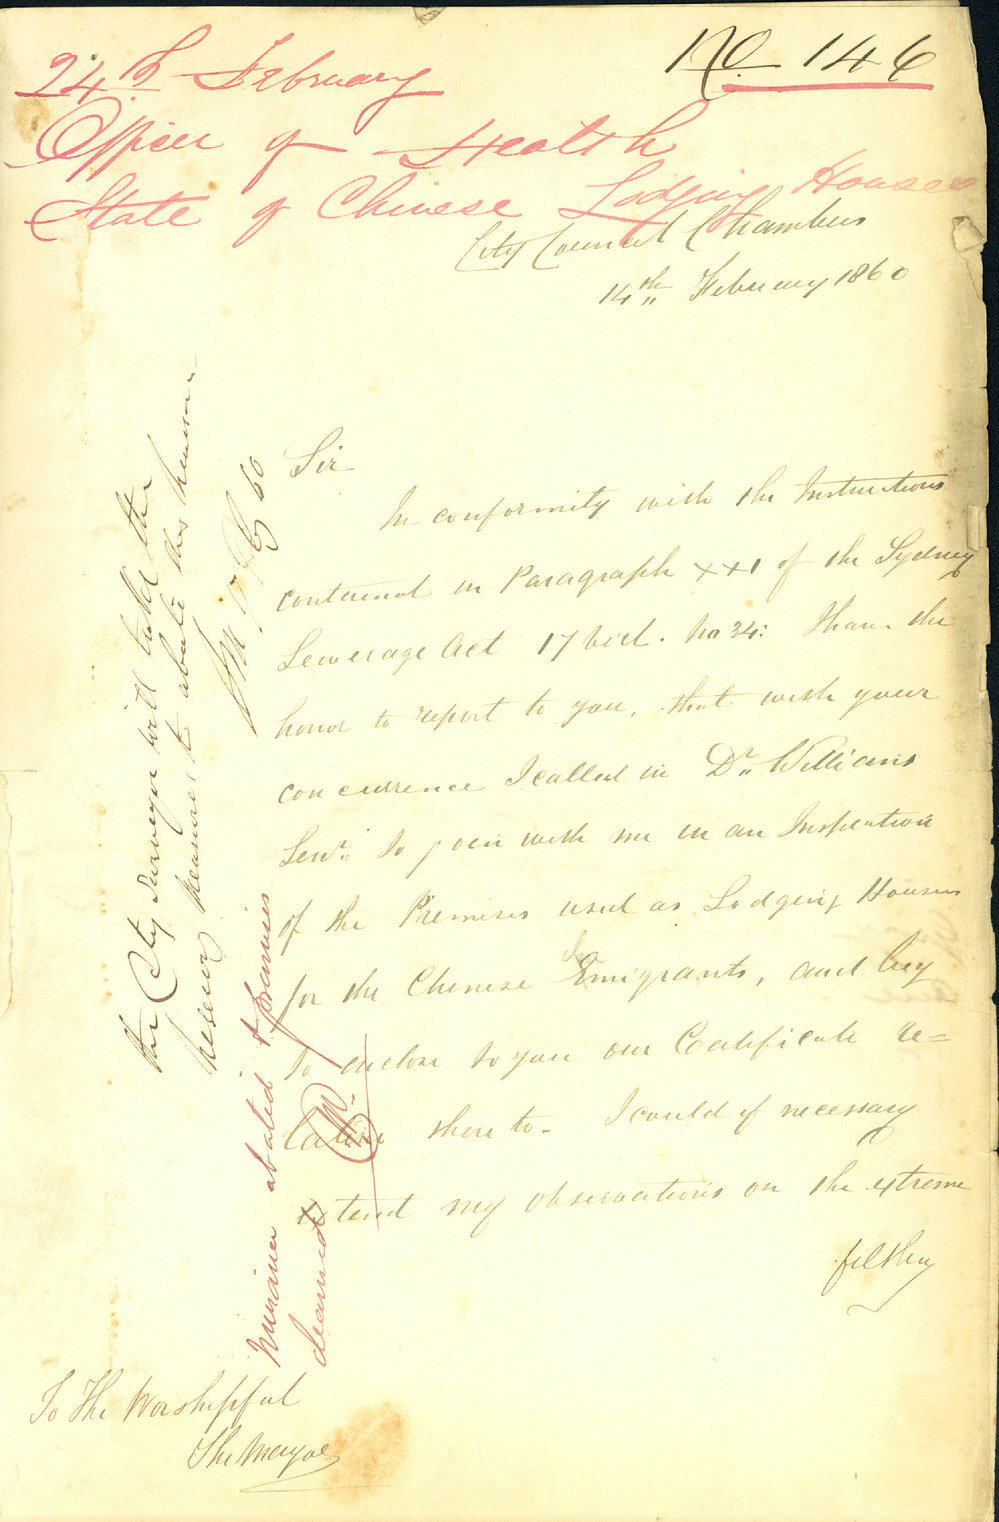 No. 146
24th February
Officer of Health
State of Chinese Lodging Houses
City Council Chambers
14th February 1860
Sir
In conformity with the Instructions
contained in Paragraph XX1 of the Sydney
Sewerage Act 17 Vict. No 34: I have the
honor to report to you, that with your
concurrence I called in Dr. Williams
Senr. to join with me in an Inspection
of the Premises used as Lodging Houses
for the Chinese Emigrants, and beg
to enclose to you our Certificate re=
lative there to. I could if necessary
extend my observations on the extreme
filthy
To The Worshipful
The Mayor
The City Surveyor will take the
necessary measures to abate this
60
Nuisance abated & premises
cleansed